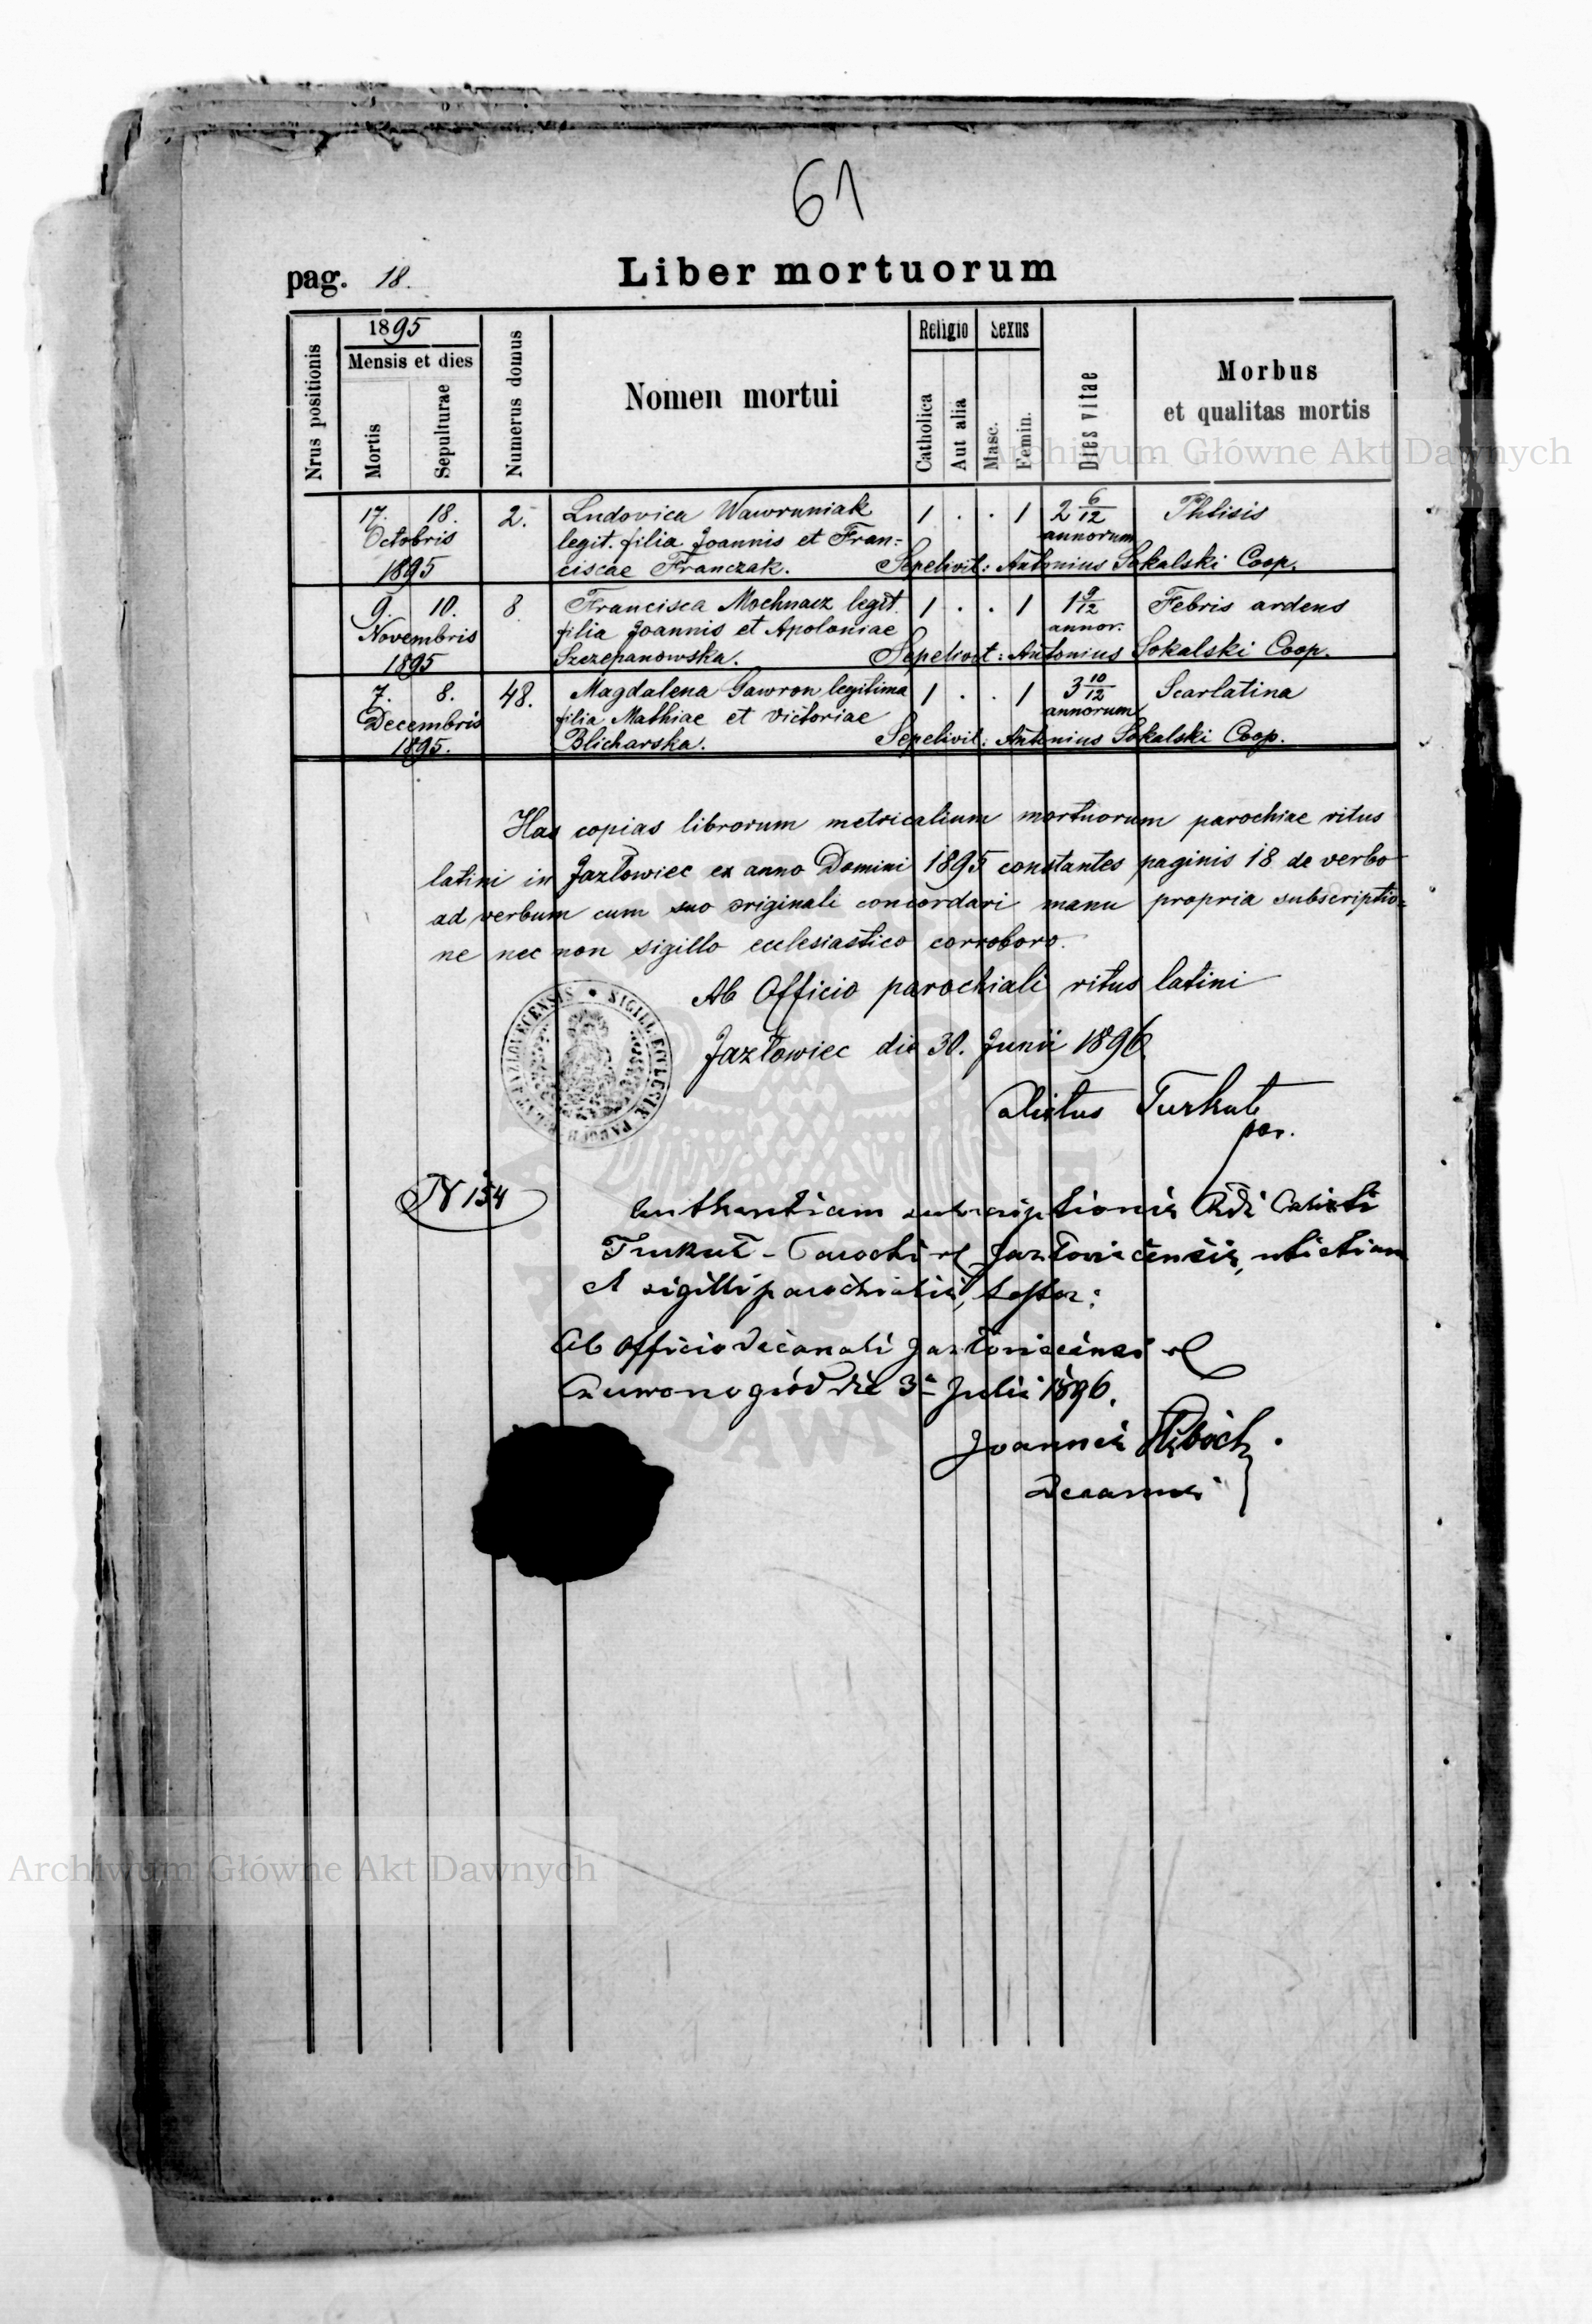 61
pag. 18.
Liber mortuorum
Nrus positionis
1895
Mensis et dies
Mortis
Sepulturae
Numerus domus
Nomen mortui
Religio
Catholica
Aut alia
Sexus
Masc.
Femin.
Dies vitae
Morbus
et qualitas mortis
17. 18. 2. Ludovica Wawruniak 1 . . 1 2 6/12 Phtisis
Octobris legit. filia Joannis et Fran= annorum
1895 ciscae Franczak. Sepelivit: Antonius Sokalski Coop.
9. 10. 8. Francisca Mochnacz legit. 1 . . 1 1 9/12 Febris ardens
Novembris filia Joannis et Apoloniae annor.
1895 Szczepanowska. Sepelivit: Antonius Sokalski Coop.
7. 8. 48. Magdalena Gawron legitima 1 . . 1 3 10/12 Scarlatina
Decembris filia Mathiae et Victoriae annorum
1895. Blicharska. Sepelivit: Antonius Sokalski Coop.
Has copias librorum metricalium mortuorum parochiae ritus
latini in Jazłowiec ex anno Domini 1895 constantes paginis 18 de verbo
ad verbum cum suo originali concordari manu propria subscriptio=
ne nec non sigillo ecclesiastico corroboro.
Ab Officio parochiali ritus latini
Jazłowiec die 30. Junii 1896.
SIGILL. ECCLESIAE PAROCH. JAZLOVECENSIS
Calixtus Turkut
par.
N 154
Authenticam subscriptionis Rdi Calixti
Turkut - Parochi rl Jazłoviecensis, uti etiam
et sigilli parochialis, testor:
Ab officio decanali Jazłovieciensi rl
Czerwonogród die 3 Julii 1896.
Joannes
Decanus
Archiwum Główne Akt Dawnych
Archiwum Główne Akt Dawnych